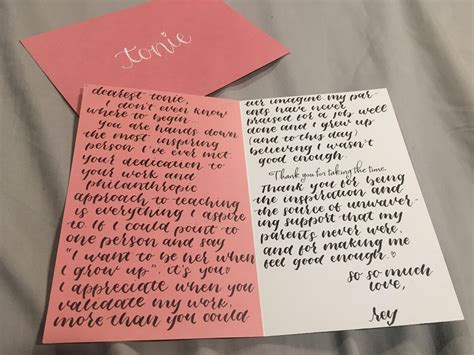 tonie
dearest tonie,
I don't even know
where to begin...
you are hands down
the most inspiring
person I've ever met.
your dedication to
your work and
philanthropic
approach to teaching
is everything I aspire
to. If I could point to
one person and say
"I want to be her when
I grow up", it's you♡
I appreciate when you
validate my work,
more than you could
ever imagine. my par-
ents have never
praised for a job well
done and I grew up
(and to this day)
believing I wasn't
good enough.
Thank you for taking the time.
Thank you for being
the inspiration and
the source of unwaver-
ing support that my
parents never were,
and for making me
feel good enough.♡
so so much
love,
rey